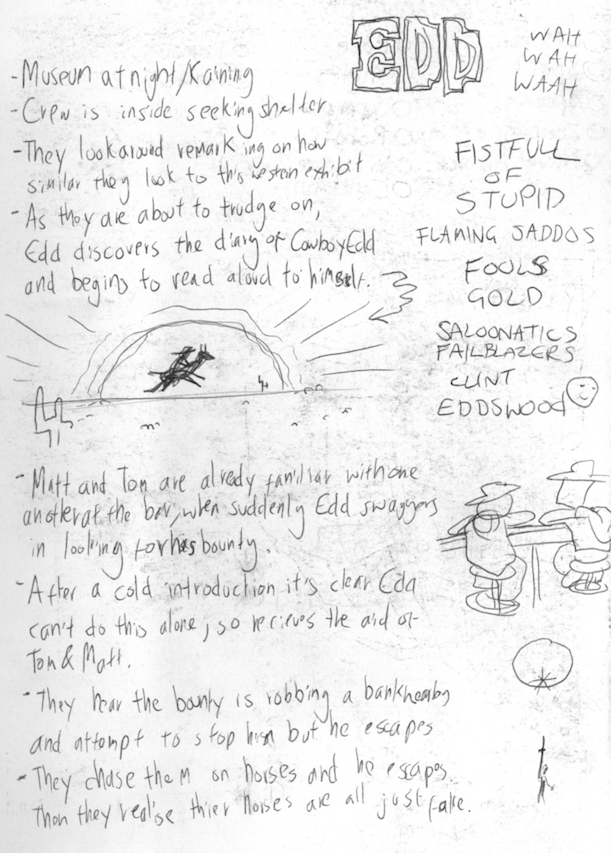 EDD
WAH
WAH
WAAH
- Museum at night/Raining
- Crew is inside seeking shelter
- They look around remarking on how
similar they look to this western exhibit
- As they are about to trudge on,
Edd discovers the diary of Cowboy Edd
and begins to read aloud to himself.
FISTFULL
OF
STUPID
FLAMING SADDOS
FOOLS
GOLD
SALOONATICS
FAILBLAZERS
CLINT
EDDSWOOD
- Matt and Tom are already familiar with one
another at the bar, when suddenly Edd swaggers
in looking for his bounty.
- After a cold introduction it's clear Edd
can't do this alone, so recieves the aid of
Tom & Matt.
- They hear the bounty is robbing a bank nearby
and attempt to stop him but he escapes
- They chase them on horses and he escapes.
Then they realise thier horses are all just fake.